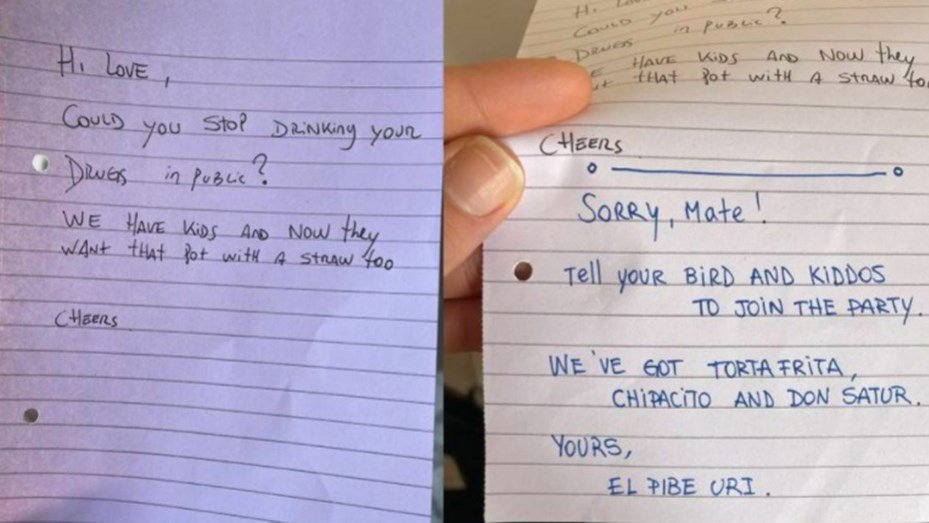 Hi LOVE,
COULD you STOP DRINKING YOUR
DRUGS in public?
WE HAVE KiDS AND NOW they
WANT tHAT Pot witH A STRAW too
CHEERS
Hi
COULD you
DRUGS in public?
E HAVE KiDS AND NOW they
tHAT Pot witH A STRAW to
CHEERS
SORRY, MATE!
TELL YOUR BiRD AND KIDDOS
TO JOIN THE PARTY.
WE'VE GOT TORTA FRITA,
CHiPACiTO AND DON SATUR.
YOURS,
EL PIBE URI.